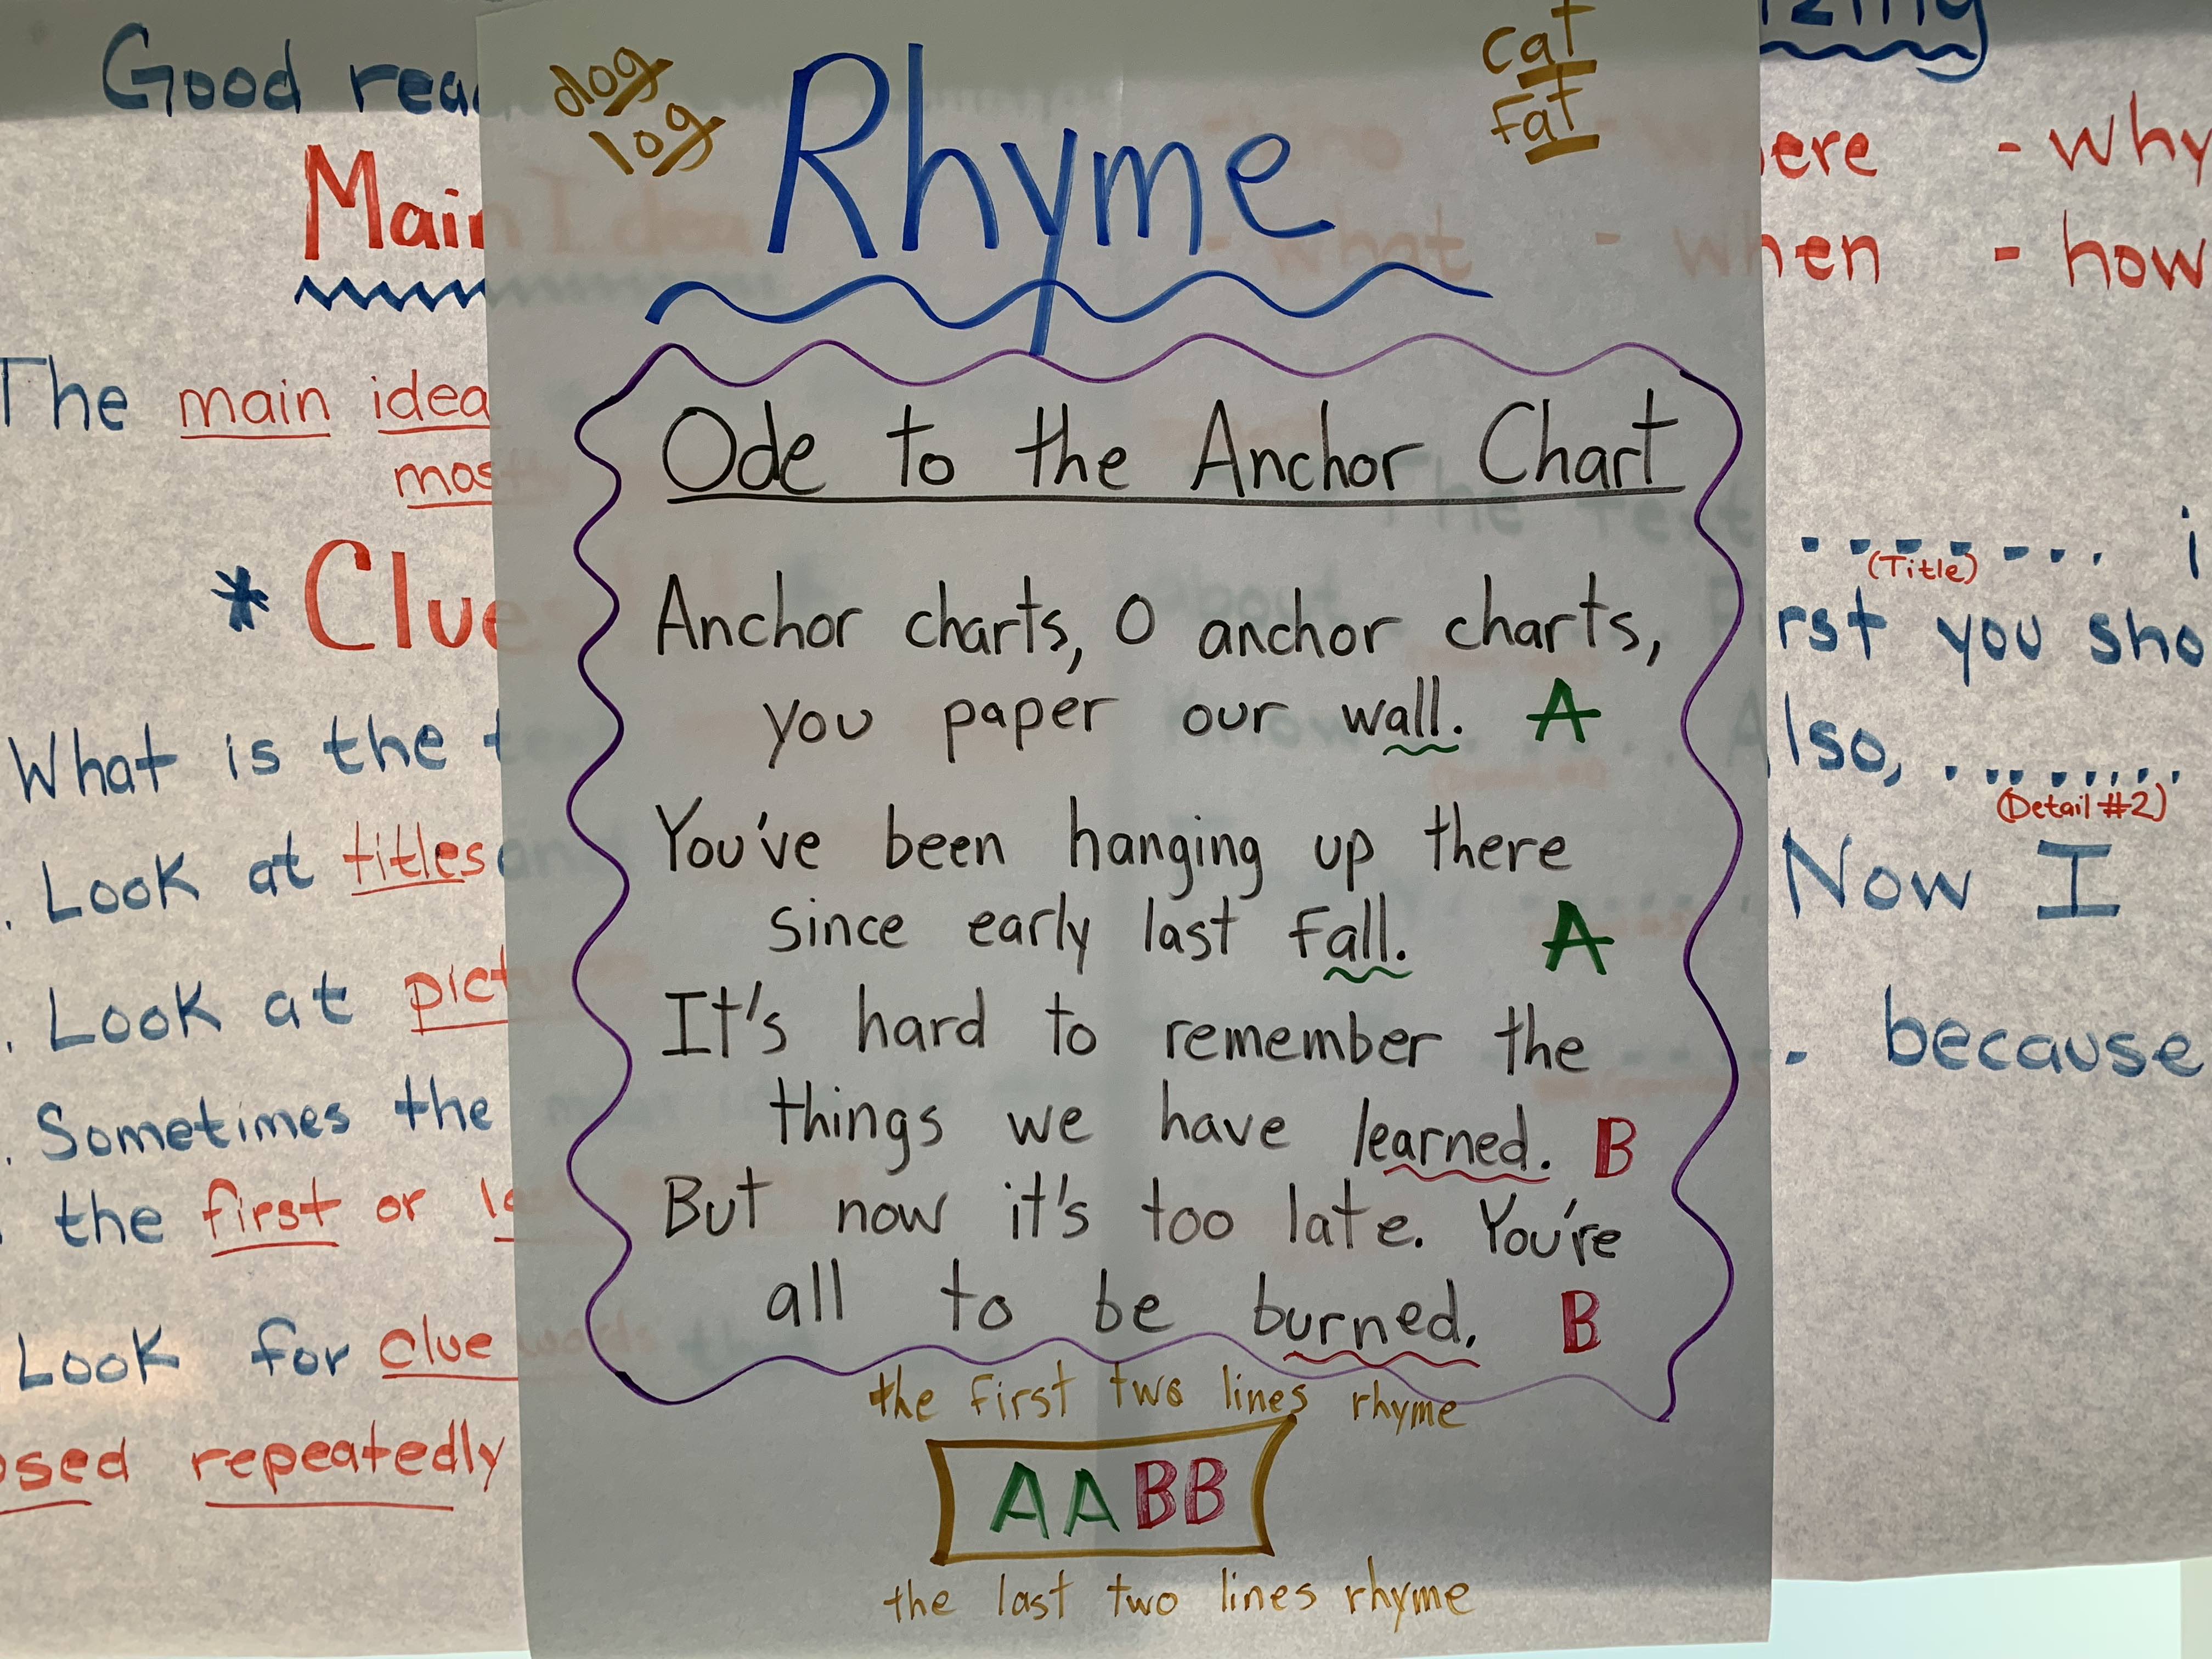 Good
dog
log
Rhyme
cat
fat
Main Idea
- why
- what
- when
- how
The main idea
mostly
Ode to the Anchor Chart
* Clue
(Title)
Anchor charts, O anchor charts,
you paper our wall. A
What is the
You've been hanging up there
since early last fall. A
Look at titles and
It's hard to remember the
things we have learned. B
Look at
But now it's too late. You're
all to be burned. B
Sometimes the
the first or
Look for clue words
repeatedly
you
(Detail #2)
Now I
because
the first two lines rhyme
AABB
the last two lines rhyme